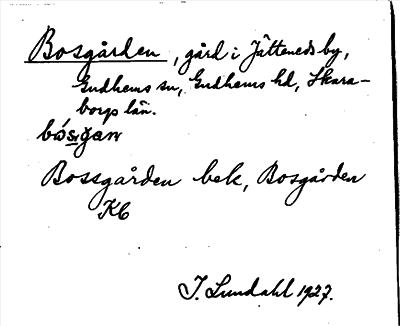 Bosgården, gård i Jätteneds by,
Gudhems sn, Gudhems hd, Skara-
borgs län.
Bossgården bek, Bosgården
KB
I. Lundahl 1927.